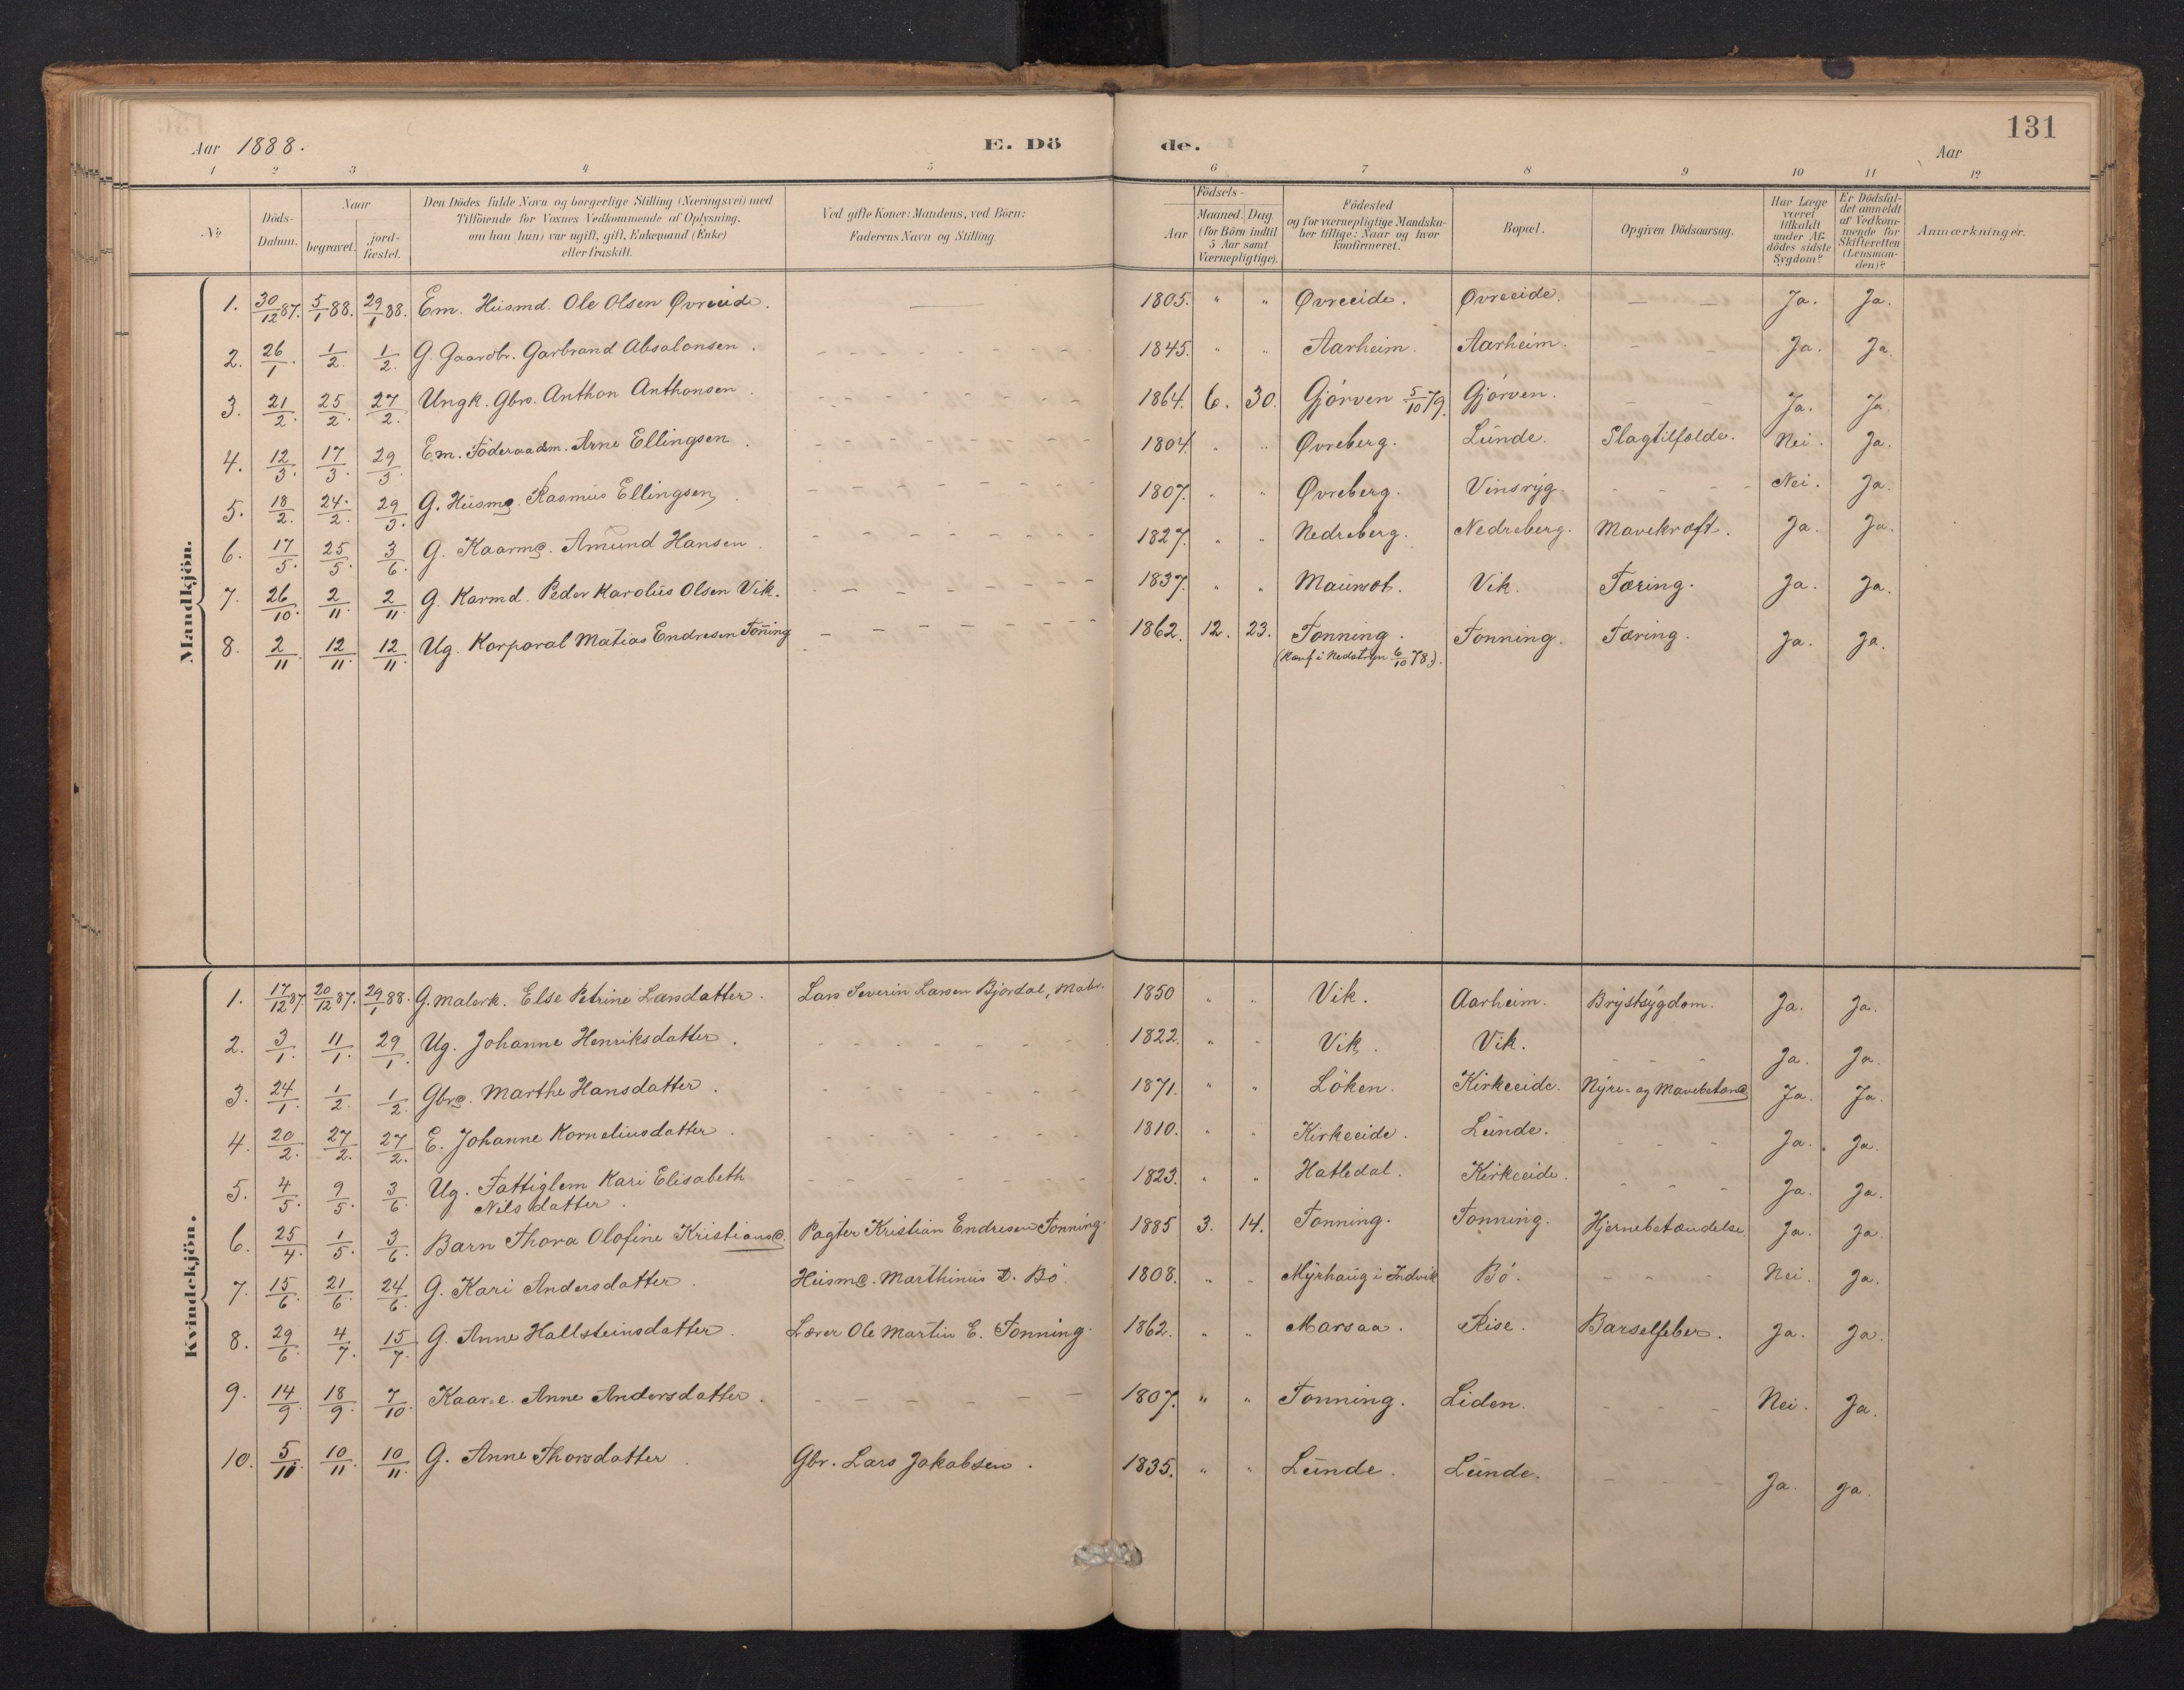 131
Aar 1888. E. Dö de. Aar
1 2 3 4 5 6 7 8 9 10 11 12
No Döds-Datum. Naar begravet. jord-fæstet. Den Dödes fulde Navn og borgerlige Stilling (Næringsvei) med Tilföiende for Voxnes Vedkommende af Oplysning, om han (hun) var ugift, gift, Enkemand (Enke) eller fraskilt. Ved gifte Koner: Mandens, ved Börn: Faderens Navn og Stilling Födsels- Aar Maaned. Dag (for Börn indtil 5 Aar samt Værnepligtige). Födested og for værnepligtige Mandskaber tillige: Naar og hvor konfirmeret. Bopæl. Opgiven Dödsaarsag. Har Læge været tilkaldt under Afdödes sidste Sygdom? Er Dödsfaldet anmeldt af Vedkommende for Skifteretten (Lensmanden)? Anmærkninger.
Mandkjön.
1. 30/12 87. 5/1 88. 29/1 88. Em. Husmd. Ole Olsen Øvreeide. — 1805. " " Øvreeide. Øvreeide. — — Ja. Ja.
2. 26/1. 1/2. 1/2. G. Gaardbr. Garbrand Absalonsen. - - - 1845. " " Aarheim. Aarheim. - - Ja. Ja.
3. 21/2. 25/2. 27/2. Ungk. Gbrs. Anthon Anthonsen. - - - 1864. 6. 30. Gjörven 5/10 79. Gjörven. - - Ja. Ja.
4. 12/3. 17/3. 29/3. Em. Föderaadsm. Arne Ellingsen. - - - 1804. " " Øvreberg. Lunde. Slagtilfælde. Nei. Ja.
5. 18/2. 24/2. 29/3. G. Husmd. Rasmus Ellingsen. - - - 1807. " " Øvreberg. Vinsryg. - - - Nei. Ja.
6. 17/5. 25/5. 3/6. G. Kaarmd. Amund Hansen. - - - 1827. " " Nedreberg. Nedreberg. Mavekræft. Ja. Ja.
7. 26/10. 2/11. 2/11. G. Karmd. Peder Karolus Olsen Vik. - - - 1837. " " Maurset. Vik. Tæring. Ja. Ja.
8. 2/11. 12/11. 12/11. Ug. Korporal Matias Endresen Toning - - - 1862. 12. 23. Tonning. Tonning. Tæring. Ja. Ja.
(Konf. i Nedstryn 6/10 78.).
Kvindekjön.
1. 17/12 87. 20/12 87. 29/1 88. G. Malerk. Else Petrine Larsdatter. Lars Severin Larsen Bjordal, Mabr. 1850 " " Vik. Aarheim. Brystsygdom. Ja. Ja.
2. 3/1. 11/1. 29/1. Ug. Johanne Henriksdatter. - - - 1822. " " Vik. Vik. - - - Ja. Ja.
3. 24/1. 1/2. 1/2. Gbrd. Marthe Hansdatter. - - - 1871. " " Löken. Kirkeeide. Nyre- og Mavebetænd. Ja. Ja.
4. 20/2. 27/2. 27/2. E. Johanne Korneliusdatter. - - - 1810. " " Kirkeeide. Lunde. - - - Ja. Ja.
5. 4/5. 9/5. 3/6. Ug. Fattiglem Kari Elisabeth - - - 1823. " " Hatledal. Kirkeeide. - - - Ja. Ja.
Nilsdatter.
6. 25/4. 1/5. 3/6. Barn Thora Olofine Kristiansd. Pagter Kristian Endresen Tonning. 1885 3. 14. Tonning. Tonning. Hjernebetændelse. Ja. Ja.
7. 15/6. 21/6. 24/6. G. Kari Andersdatter. Husmd. Marthinus D. Bö. 1808. " " Myrhaug i Indvik Bö. - - - Nei. Ja.
8. 29/6. 4/7. 15/7. G. Anne Hallsteinsdatter. Lærer Ole Martin E. Tonning. 1862. " " Marsaa. Rise. Barselfeber. Ja. Ja.
9. 14/9. 18/9. 7/10. Kaar.e. Anne Andersdatter. - - - 1807. " " Tonning. Liden. - - - Nei. Ja.
10. 5/11. 10/11. 10/11. G. Anne Thorsdatter. Gbr. Lars Jakobsen. 1835. " " Lunde. Lunde. - - - Ja. Ja.